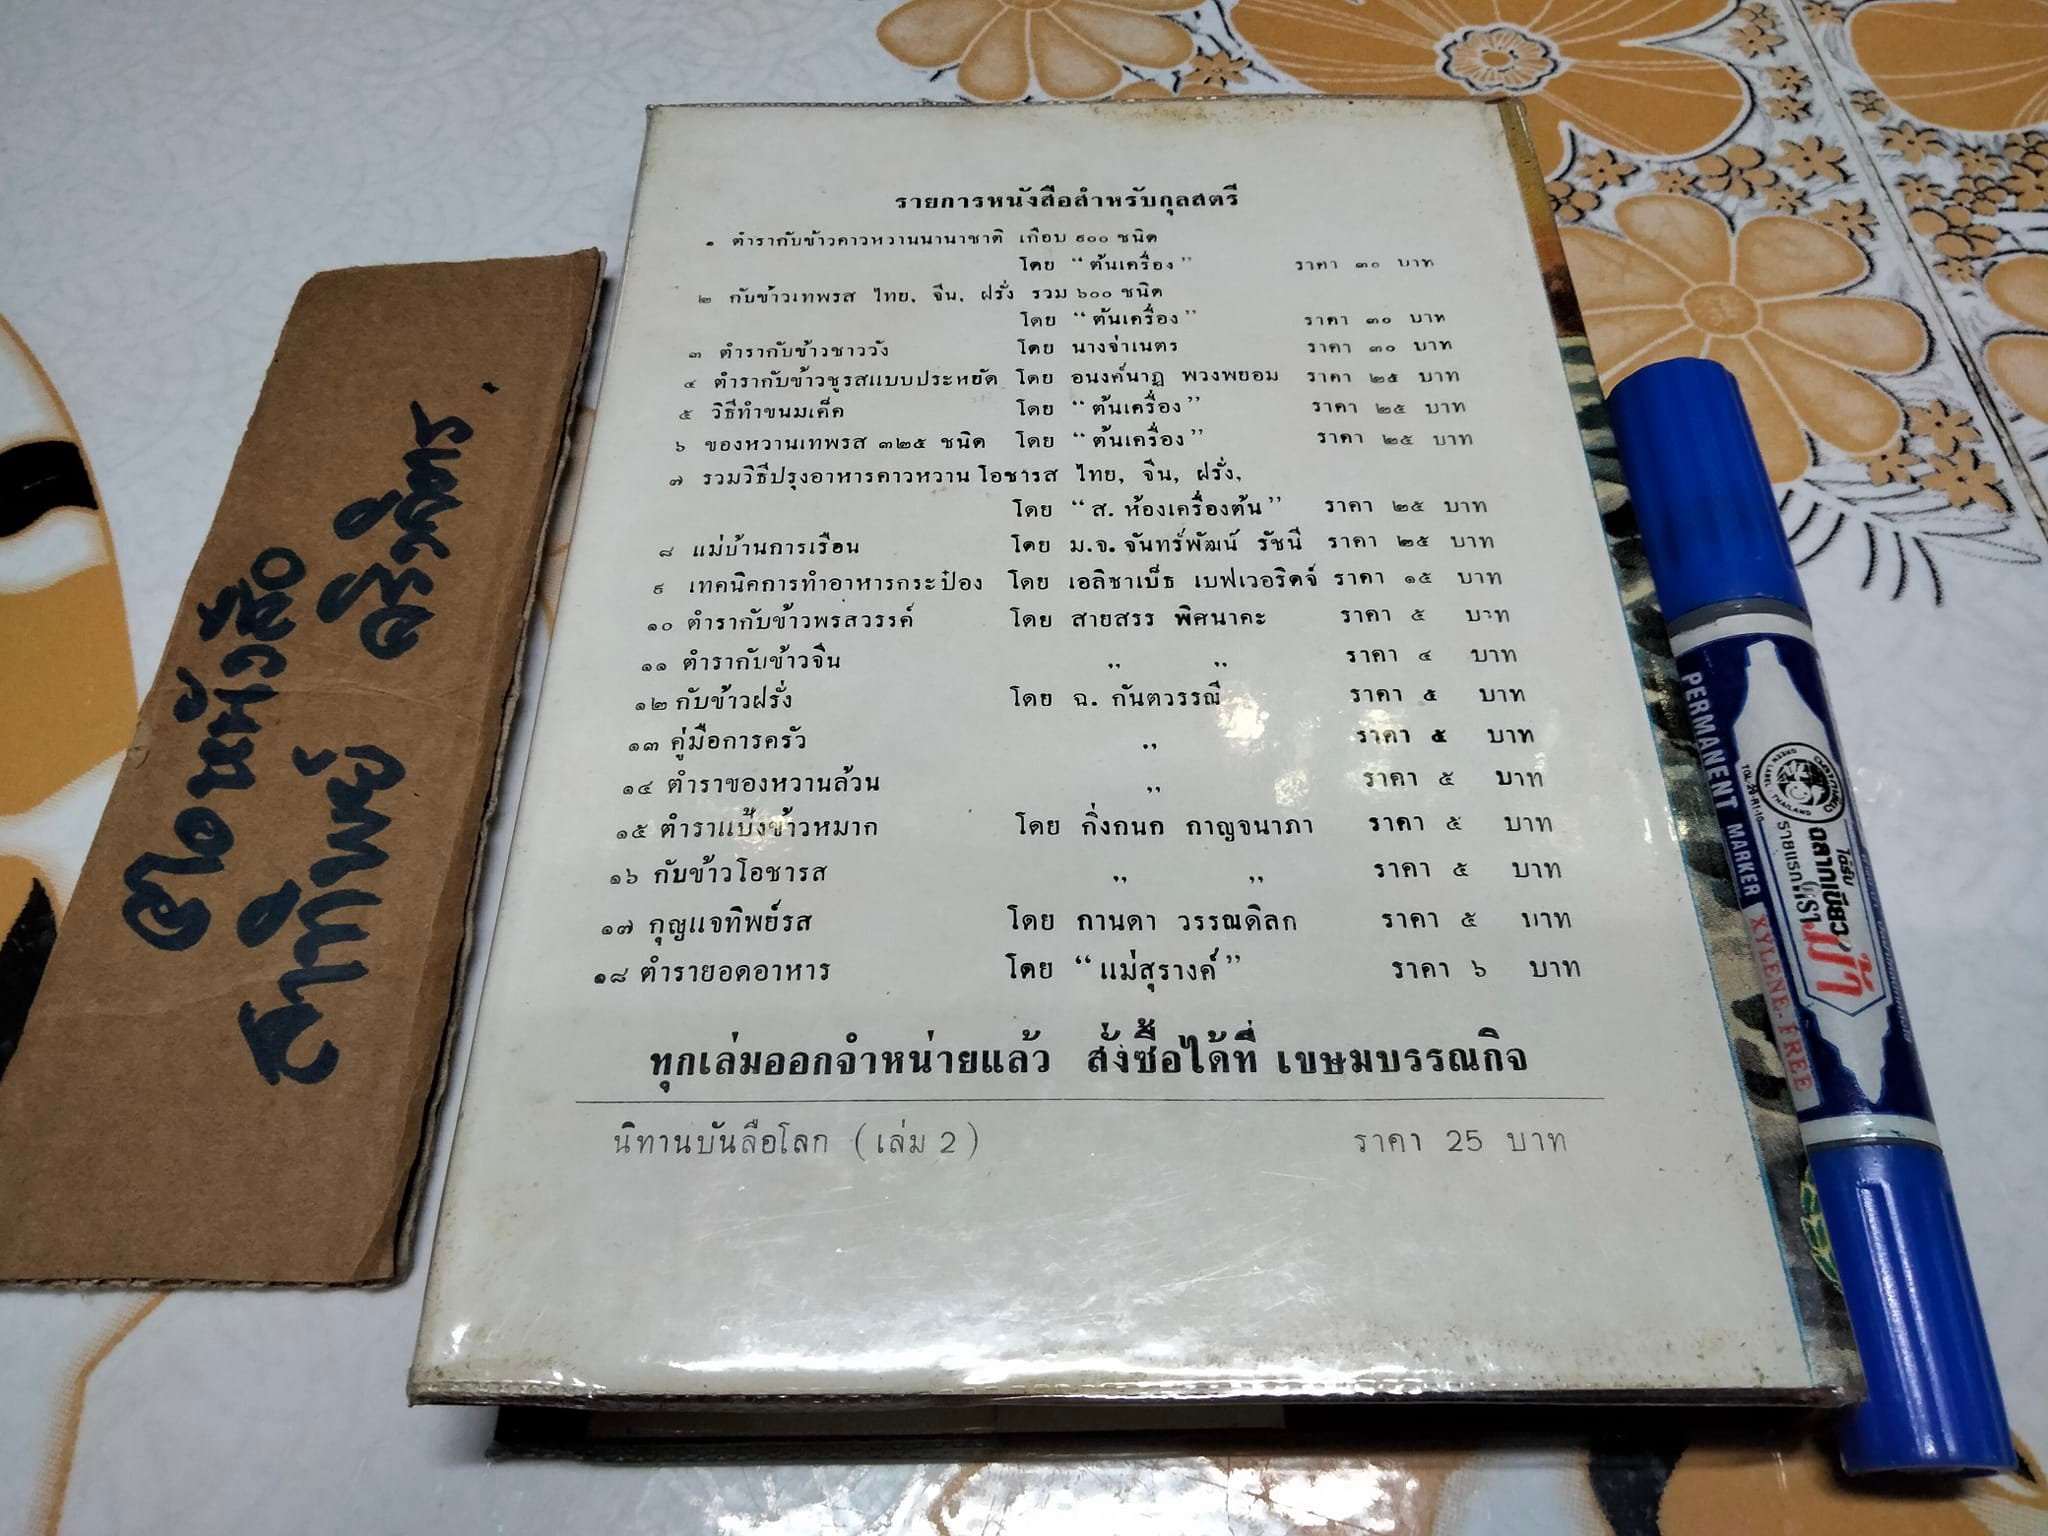 รายการหนังสือสำหรับกุลสตรี
๑ ตำรากับข้าวคาวหวานนานาชาติ เกือบ ๙๐๐ ชนิด
โดย “ต้นเครื่อง” ราคา ๓๐ บาท
๒ กับข้าวเทพรส ไทย, จีน, ฝรั่ง รวม ๖๐๐ ชนิด
โดย “ต้นเครื่อง” ราคา ๓๐ บาท
๓ ตำรากับข้าวชาววัง โดย นางจ่าเนตร ราคา ๓๐ บาท
๔ ตำรากับข้าวชูรสแบบประหยัด โดย อนงค์นาฏ พวงพยอม ราคา ๒๕ บาท
๕ วิธีทำขนมเค็ค โดย “ต้นเครื่อง” ราคา ๒๕ บาท
๖ ของหวานเทพรส ๓๒๕ ชนิด โดย “ต้นเครื่อง” ราคา ๒๕ บาท
๗ รวมวิธีปรุงอาหารคาวหวาน โอชารส ไทย, จีน, ฝรั่ง,
โดย “ส. ห้องเครื่องต้น” ราคา ๒๕ บาท
๘ แม่บ้านการเรือน โดย ม.จ. จันทร์พัฒน์ รัชนี ราคา ๒๕ บาท
๙ เทคนิคการทำอาหารกระป๋อง โดย เอลิซาเบ็ธ เบฟเวอริดจ์ ราคา ๑๕ บาท
๑๐ ตำรากับข้าวพรสวรรค์ โดย สายสรร พิศนาคะ ราคา ๕ บาท
๑๑ ตำรากับข้าวจีน ,, ,, ราคา ๔ บาท
๑๒ กับข้าวฝรั่ง โดย ฉ. กันตวรรณี ราคา ๕ บาท
๑๓ คู่มือการครัว ,, ราคา ๕ บาท
๑๔ ตำราของหวานล้วน ,, ราคา ๕ บาท
๑๕ ตำราแป้งข้าวหมาก โดย กิ่งกนก กาญจนาภา ราคา ๕ บาท
๑๖ กับข้าวโอชารส ,, ,, ราคา ๕ บาท
๑๗ กุญแจทิพย์รส โดย กานดา วรรณดิลก ราคา ๕ บาท
๑๘ ตำรายอดอาหาร โดย “แม่สุรางค์” ราคา ๖ บาท
ทุกเล่มออกจำหน่ายแล้ว สั่งซื้อได้ที่ เขษมบรรณกิจ
นิทานบันลือโลก (เล่ม 2) ราคา 25 บาท
PERMANENT MARKER
XYLENE-FREE
ตลาดเขียว
ม้า